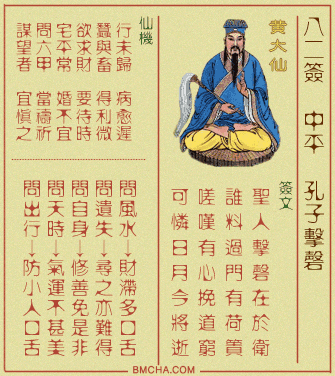 八二簽 中平 孔子擊磬
黃大仙
簽文
聖人擊磬在於衛
誰料過門有荷蕢
嗟嘆有心挽道窮
可憐日月今將逝
仙機
行未歸 病愈遲
蠶與畜 得利微
欲求財 要待時
宅平常 婚不宜
問六甲 當禱祈
謀望者 宜慎之
問風水→財滯多口舌
問遺失→尋之亦難得
問自身→修善免是非
問天時→氣運不甚美
問出行→防小人口舌
BMCHA.COM